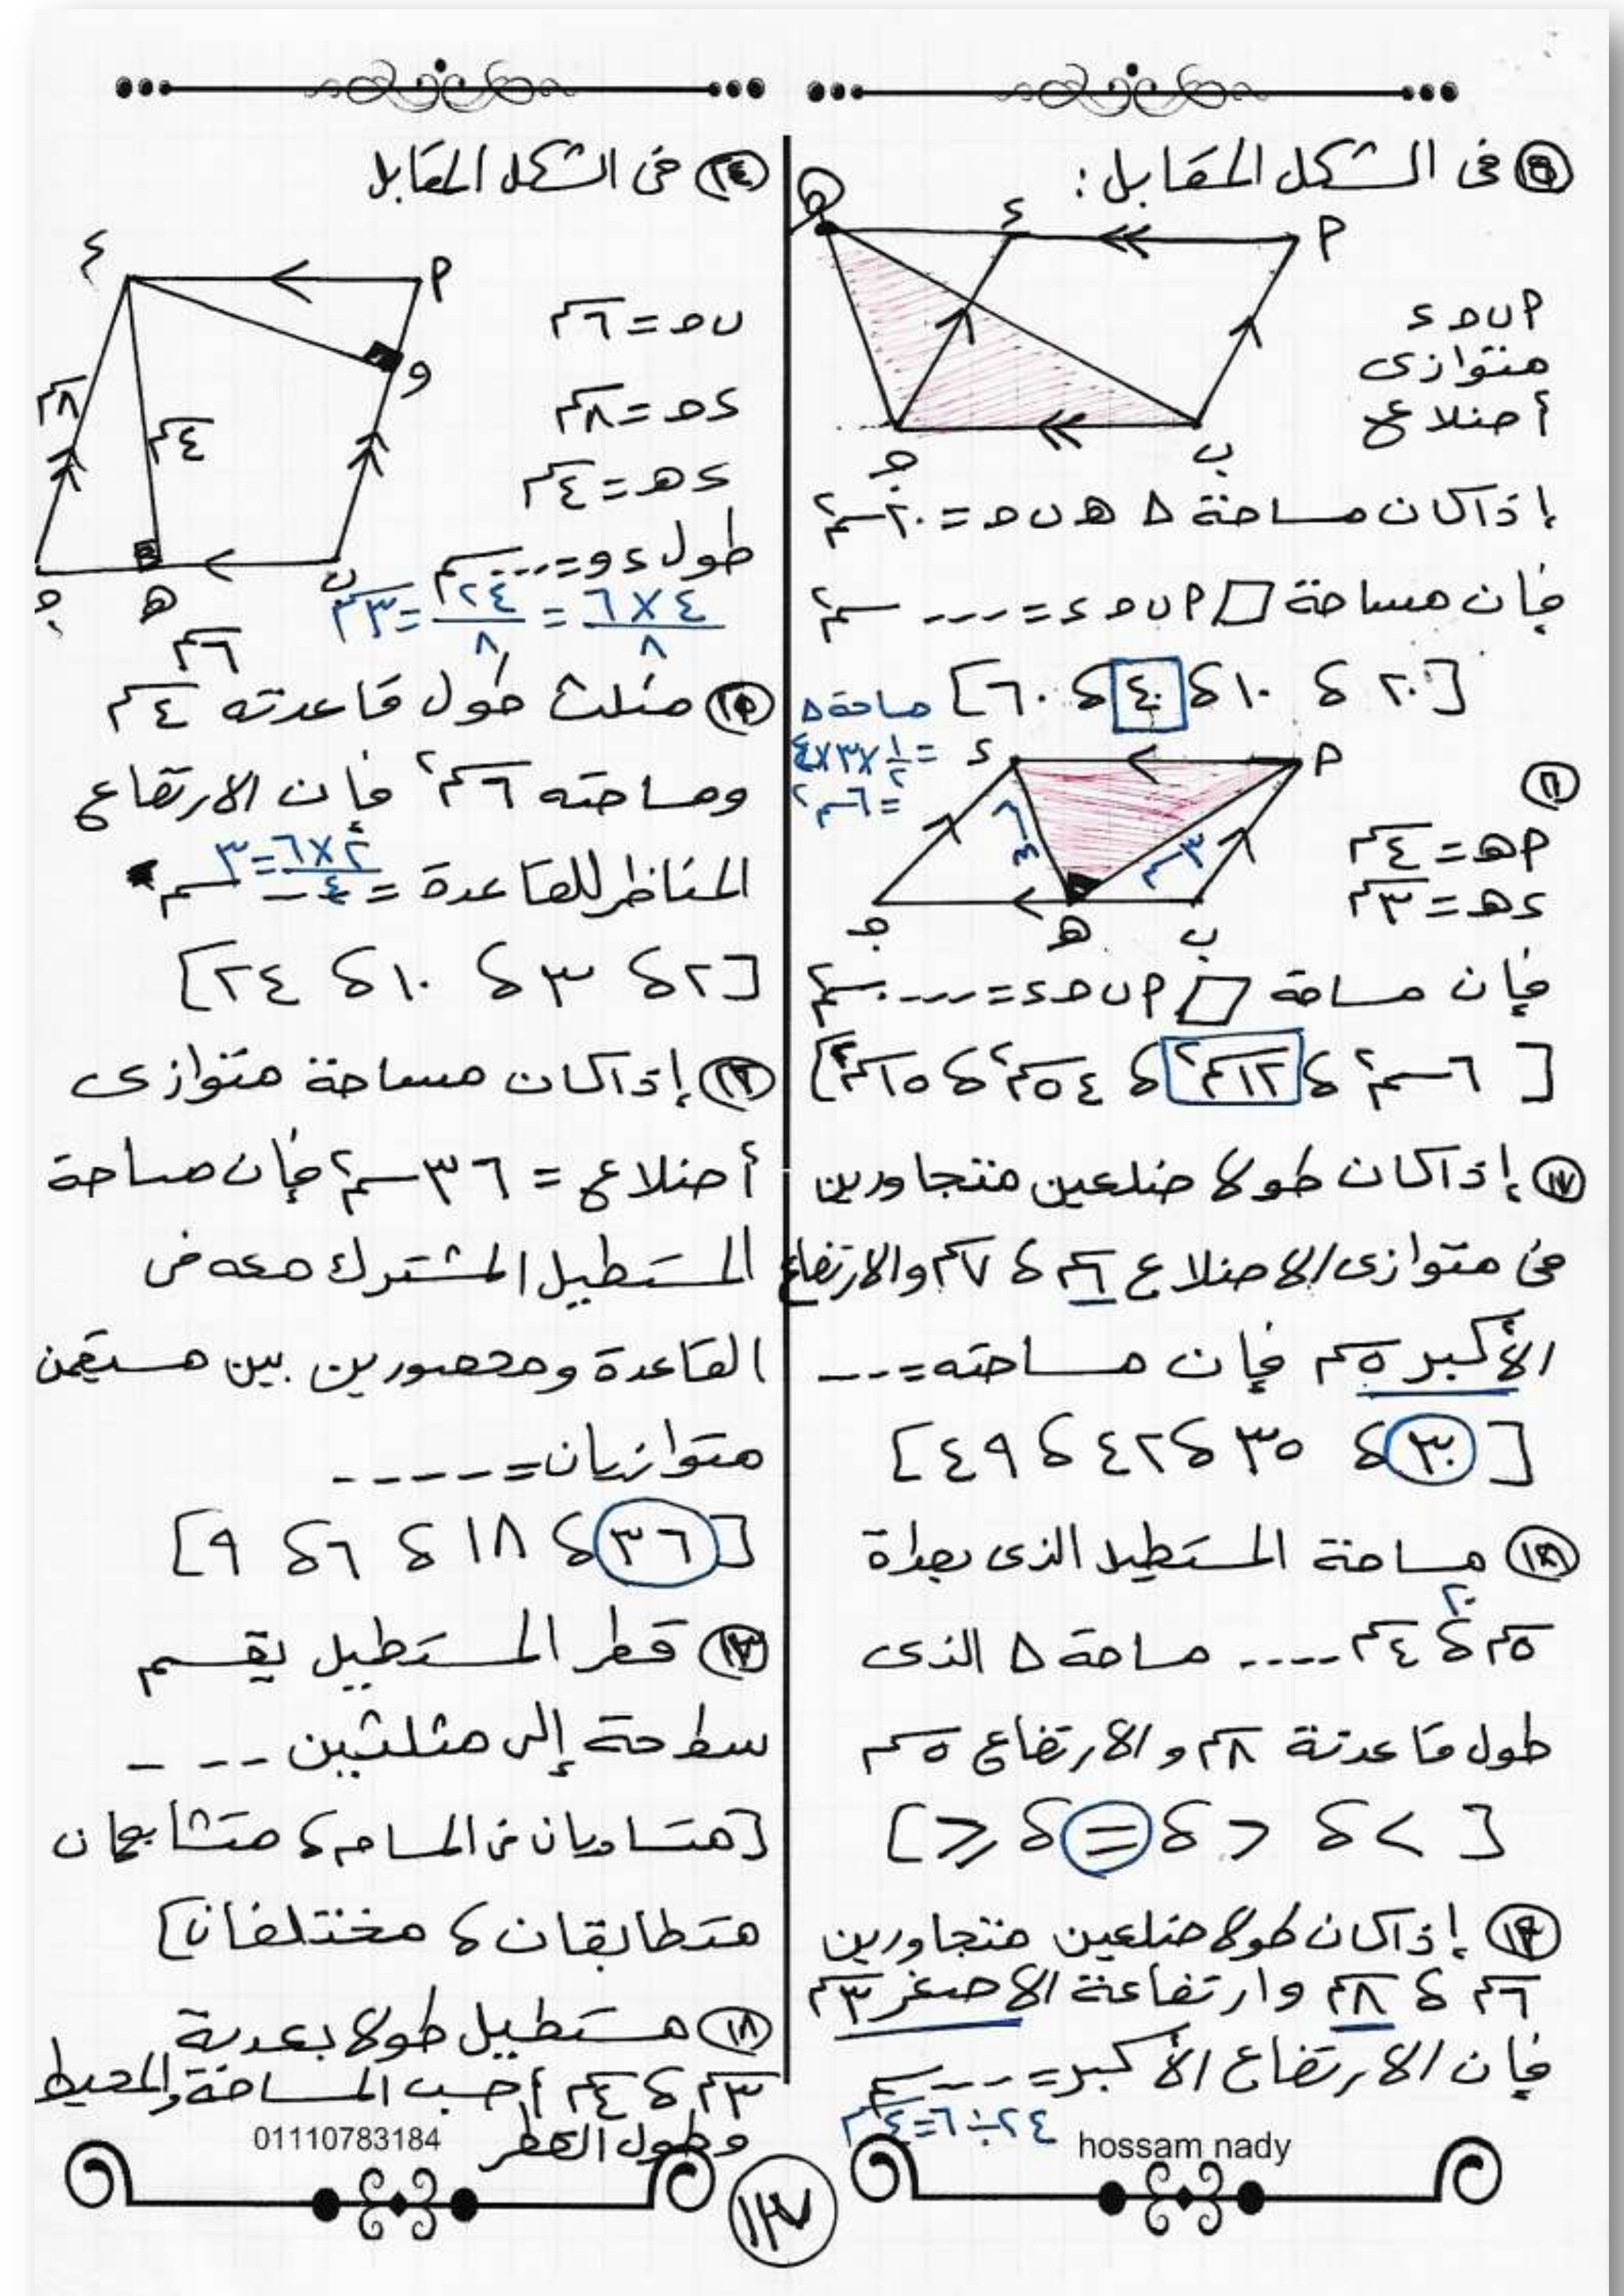 ١٥ فى الشكل المقابل :
ه
ء
أ
أ ب ج ء
متوازى
أضلاع
ج
ب
إذا كان مساحة Δ ه ب ج = ٢٠ سم٢
فإن مساحة ▱ أ ب ج ء = --- سم٢
[ ٢٠ ، ١٠ ، ٤٠ ، ٦٠ ]
مساحة Δ
= ١/٢ × ٣ × ٤
= ٦ سم٢
١٦
ء
أ
أ ه = ٤سم
ء ه = ٣سم
٣سم
ج
ه
ب
فإن مساحة ▱ أ ب ج ء = --- سم٢
[ ٦ سم٢ ، ١٢سم٢ ، ٥٤سم٢ ، ١٥سم٢ ]
١٧ إذا كان طولا ضلعين متجاورين
فى متوازى الاضلاع ٦سم ، ٧سم والارتفاع
الأكبر ٥سم فإن مساحته = ---
[ ٣٠ ، ٣٥ ، ٤٢ ، ٤٩ ]
مساحة المستطيل الذى بعداة
٢٠
٥سم ، ٤سم .... مساحة Δ الذى
طول قاعدتة ٨سم والارتفاع ٥سم
[ > ، < ، = ، ≥ ]
إذا كان طولا ضلعين متجاورين
٦سم ، ٨سم وارتفاعة الاصغر ٣سم
فإن الارتفاع الأكبر = --- سم
٢٤ ÷ ٦ = ٤سم
hossam nady
٢٤ فى الشكل المقابل
ء
أ
ب ج = ٦سم
و
ء ج = ٨سم
٨سم
٤سم
ء ه = ٤سم
طول ء و = ---- سم
ج
ه
ب
٤ × ٦ / ٨ = ٢٤ / ٨ = ٣سم
٦سم
٢٥ مثلث طول قاعدته ٤سم
ومساحته ٦سم٢ فإن الارتفاع
المناظر للقاعدة = --- سم
٢ × ٦ / ٤ = ٣
[ ٢ ، ٣ ، ١٠ ، ٢٤ ]
إذا كان مساحة متوازى
أضلاع = ٣٦ سم٢ فإن مساحة
المستطيل المشترك معه فى
القاعدة ومحصورين بين مستقمن
متوازيان = -----
[ ٣٦ ، ١٨ ، ٦ ، ٩ ]
قطر المستطيل يقسم
سطحة إلى مثلثين ---
[ متساويان فى المساحه ، متشابهان
متطابقان ، مختلفان ]
مستطيل طولا بعدية
٣سم ، ٤سم أحسب المساحة والمحيط
وطول القطر
01110783184
١٣٧